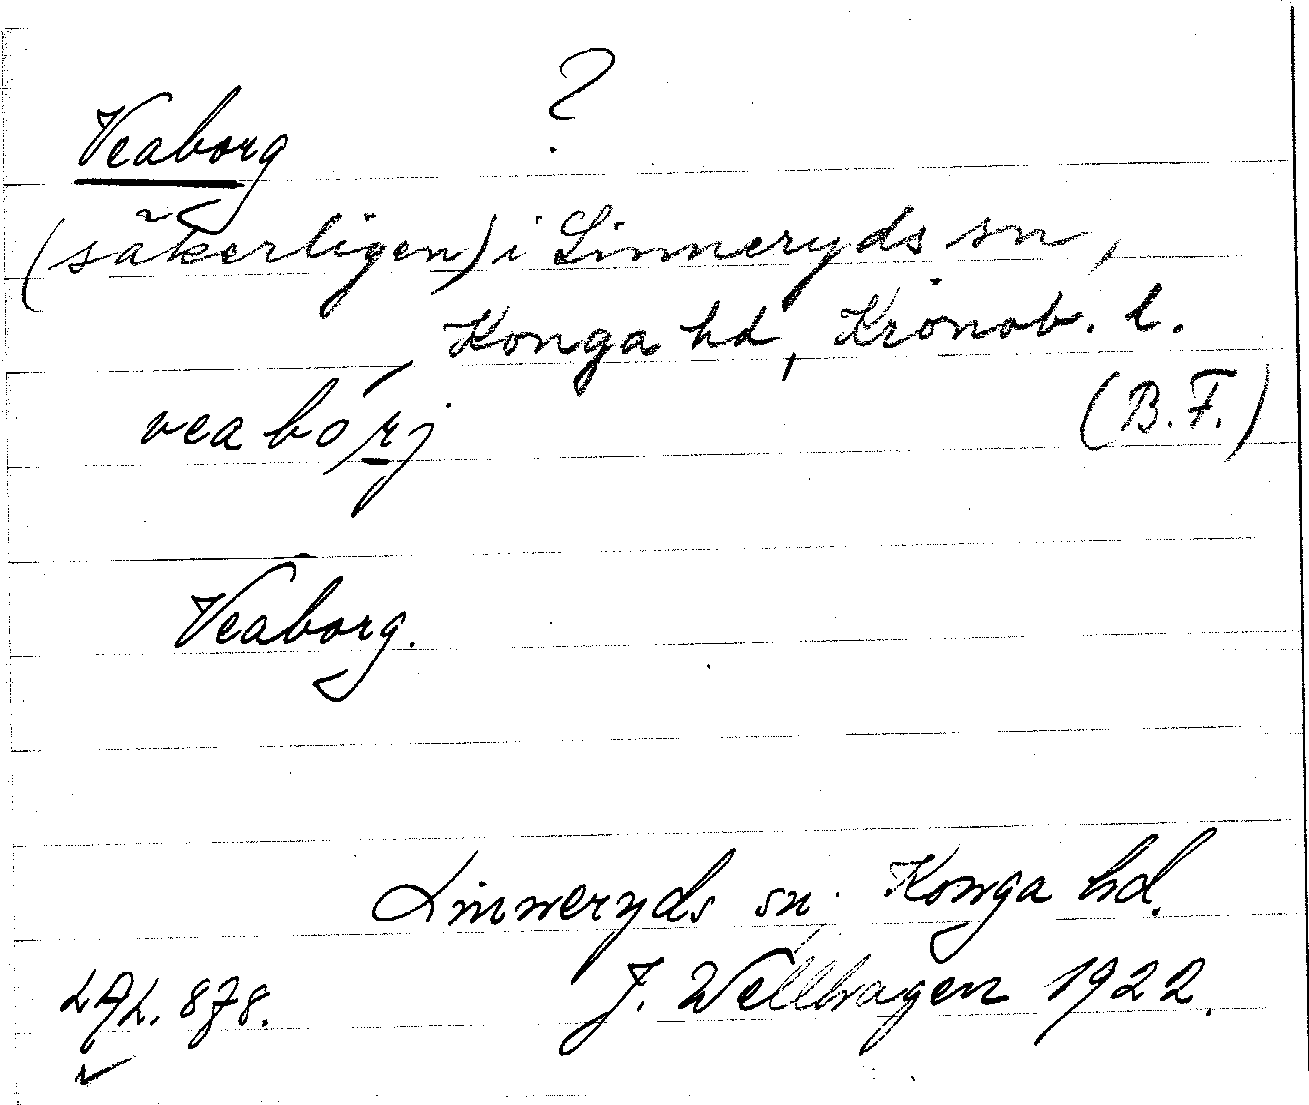 Veaborg ?
(säkerligen) i Linneryds sn,
Konga hd, Kronob. l.
(B.F.)
veabórj
Veaborg.
Linneryds sn. Konga hd.
LAL. 878. J. Wellhagen 1922.